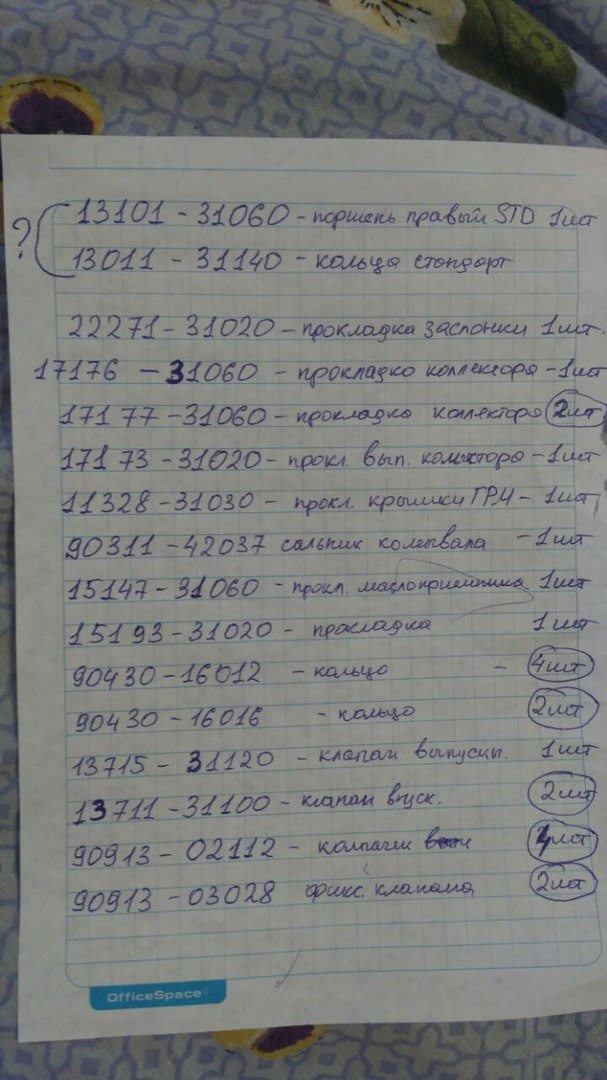 13101 - 31060 - поршень правый STD 1шт
?
13011 - 31140 - кольца стандарт
22271 - 31020 - прокладка заслонки 1шт.
17176 - 31060 - прокладка коллектора - 1шт
17177 - 31060 - прокладка коллектора 2шт
17173 - 31020 - прокл. вып. коллектора - 1шт
11328 - 31030 - прокл. крышки ГРМ - 1шт
90311 - 42037 сальник коленвала - 1шт
15147 - 31060 - прокл. маслоприемника 1шт
15193 - 31020 - прокладка 1шт
90430 - 16012 - кольцо - 4шт
90430 - 16016 - кольцо 2шт
13715 - 31120 - клапан выпускн. 1шт
13711 - 31100 - клапан впуск. 2шт
90913 - 02112 - колпачки 4шт
90913 - 03028 фикс. клапана 2шт
OfficeSpace